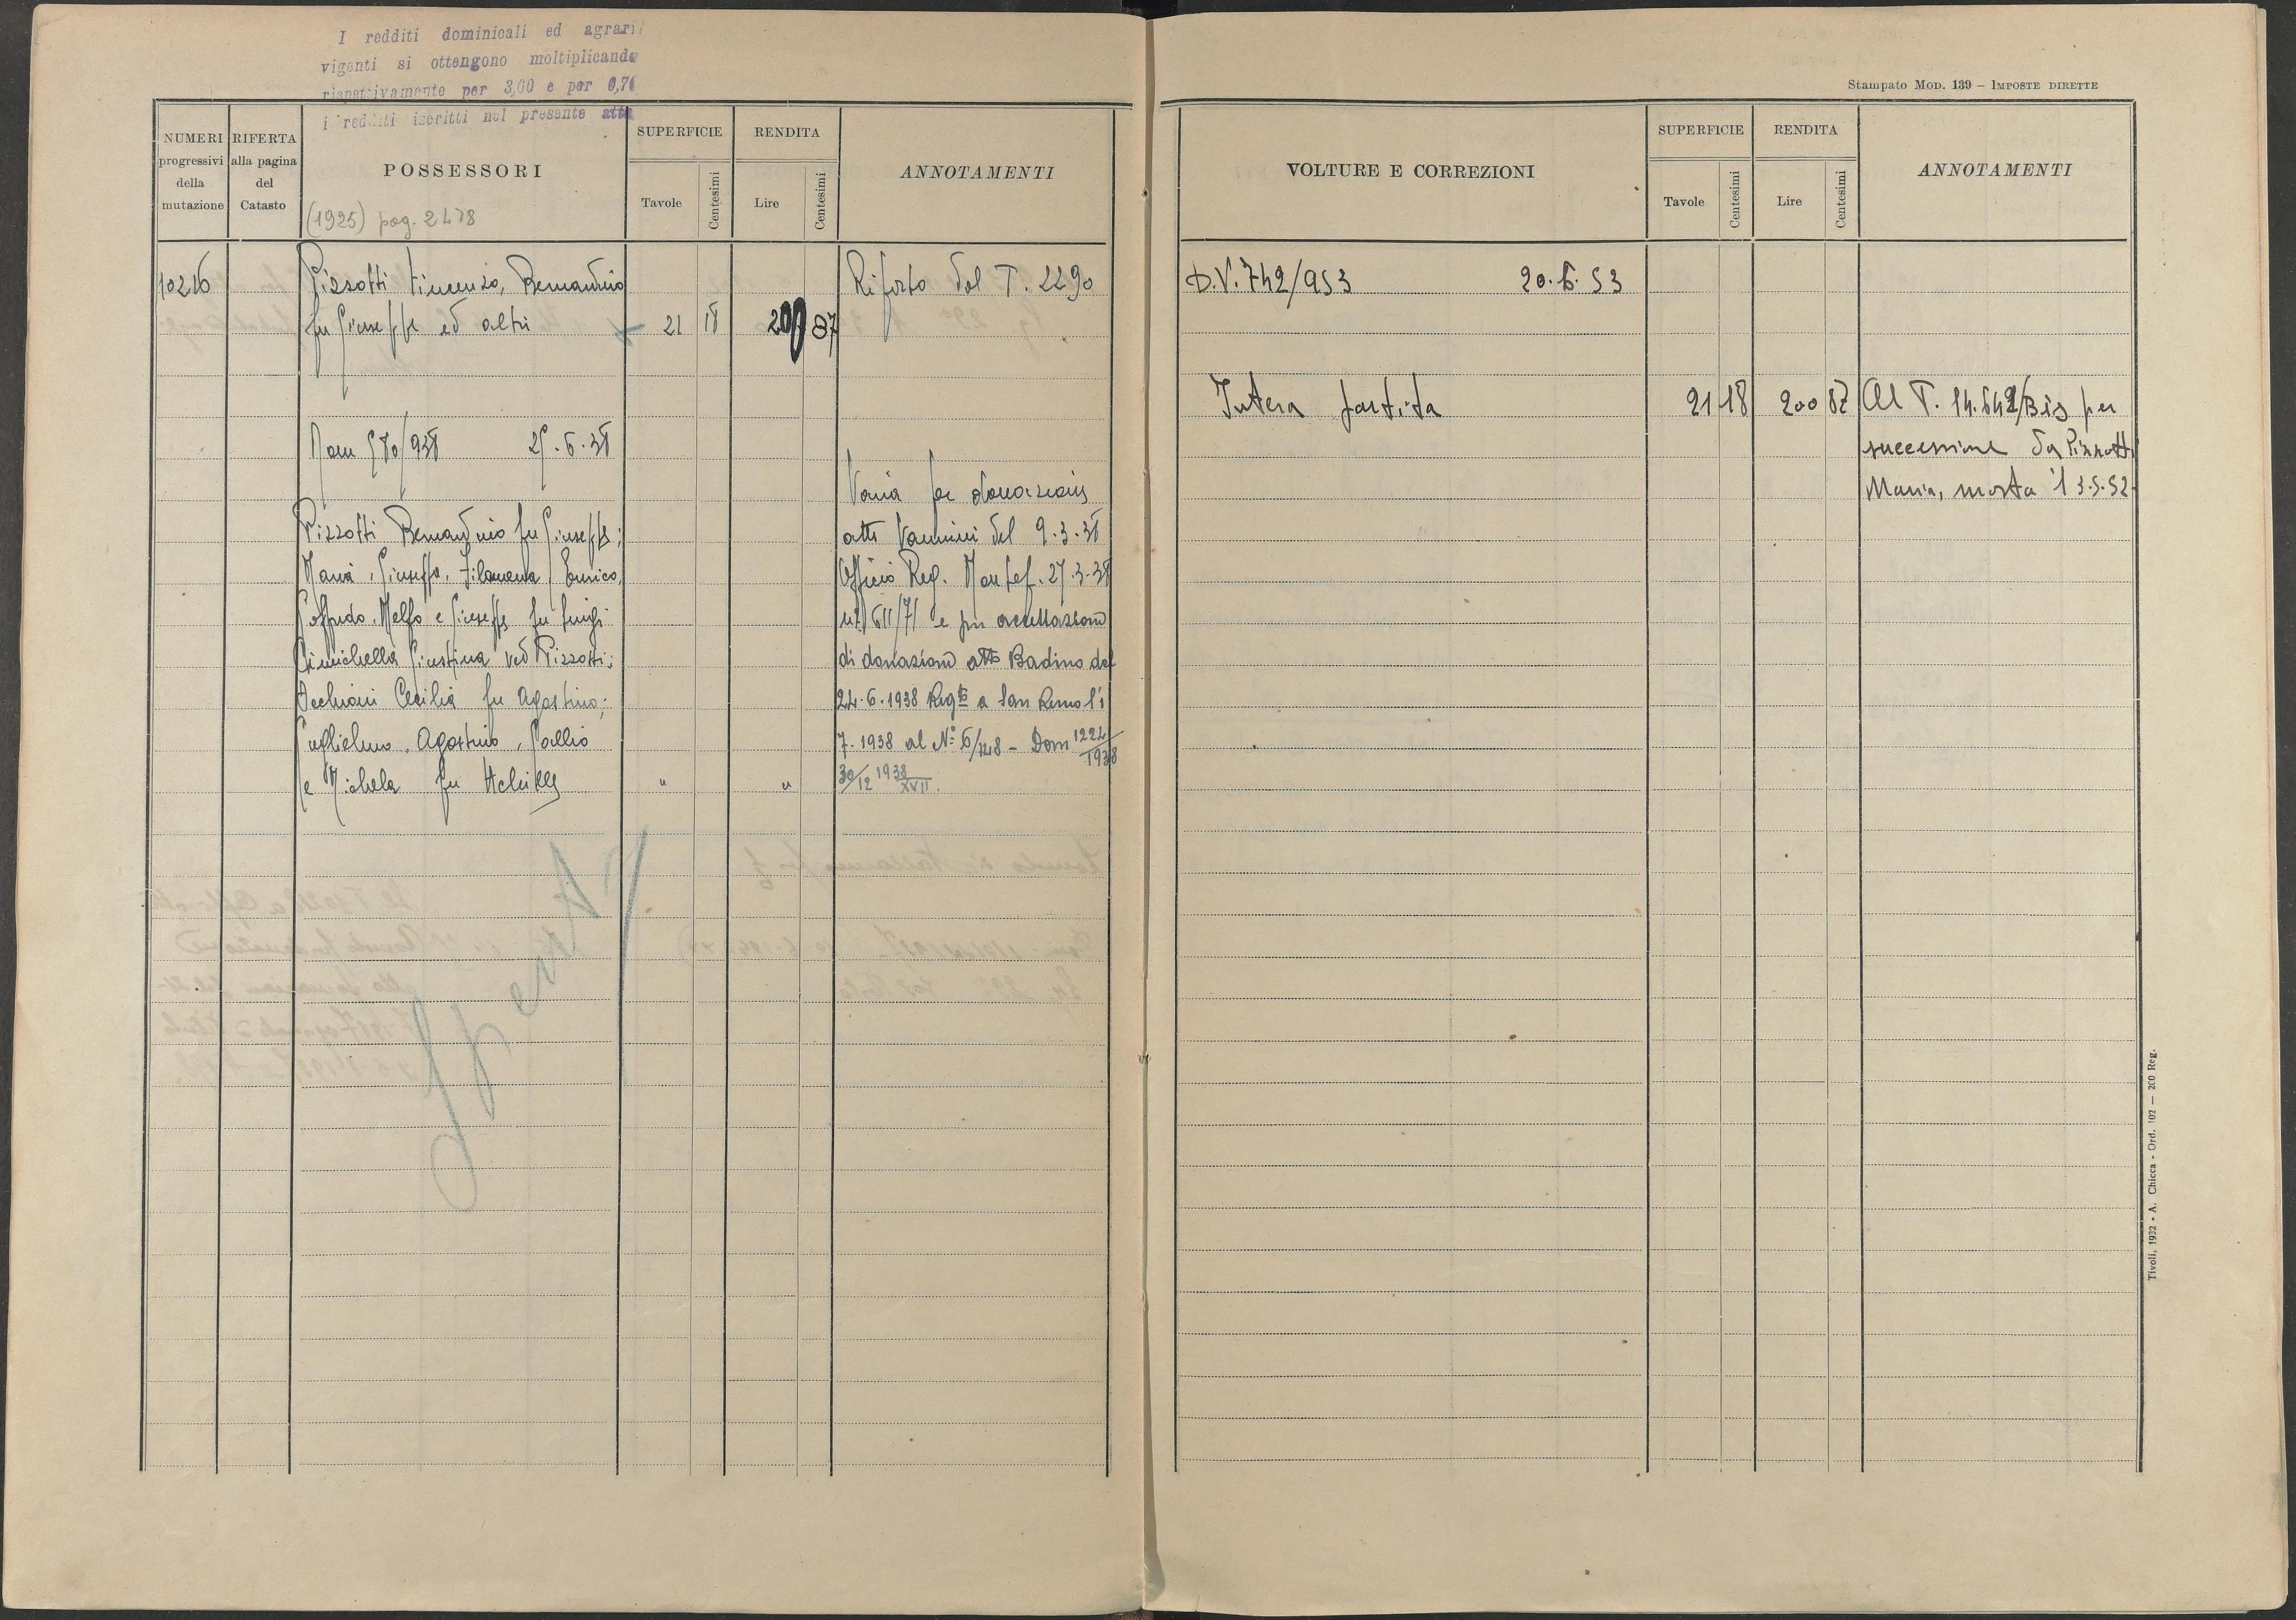 I redditi dominicali ed agrari
vigenti si ottengono moltiplicando
rispettivamente per 3,60 e per 0,76
i redditi iscritti nel presente atto
NUMERI
progressivi
della
mutazione
RIFERTA
alla pagina
del
Catasto
POSSESSORI
(1925) pag. 2478
SUPERFICIE
Tavole
Centesimi
RENDITA
Lire
Centesimi
ANNOTAMENTI
10216
Pizzotti Vincenzo, Bernardino
fu Giuseppe ed altri
21 18
200 87
Riporto dal T. 2290
Pizzotti Bernardino fu Giuseppe;
Maria, Giuseppe, Filomena, Enrico,
Goffredo, Melfo e Giuseppe fu Luigi
Giustina ved Pizzotti;
Cecilia fu Agostino;
Guglielmo, Agostino,
e Michela fu Achille
" "
Varia per donazione
atto Vannini del 9.3.38
Officio Reg. Montef. 27.3.38
n° 611/71 e per accettazione
di donazione atto Badino del
24.6.1938 Regto a San Remo l'1
7.1938 al N° 6/748 - Dom 1224/1938
30/12 1938 XVII.
Stampato MOD. 139 – IMPOSTE DIRETTE
VOLTURE E CORREZIONI
SUPERFICIE
Tavole
Centesimi
RENDITA
Lire
Centesimi
ANNOTAMENTI
D.V. 742/953 20.6.53
Intera partita
21 18
200 87
Al T. 14.642/Bis per
successione da Pizzotti
Maria, morta il 3.5.52
Tivoli, 1932 - A. Chicca - Ord. 102 — 200 Reg.